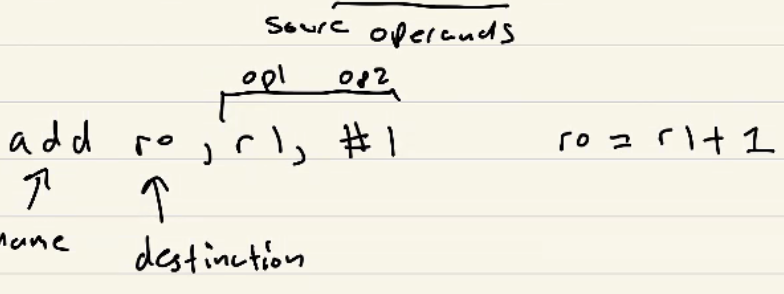 Sourc operands
op1 op2
add r0, r1, #1 r0 = r1 + 1
name
destinction